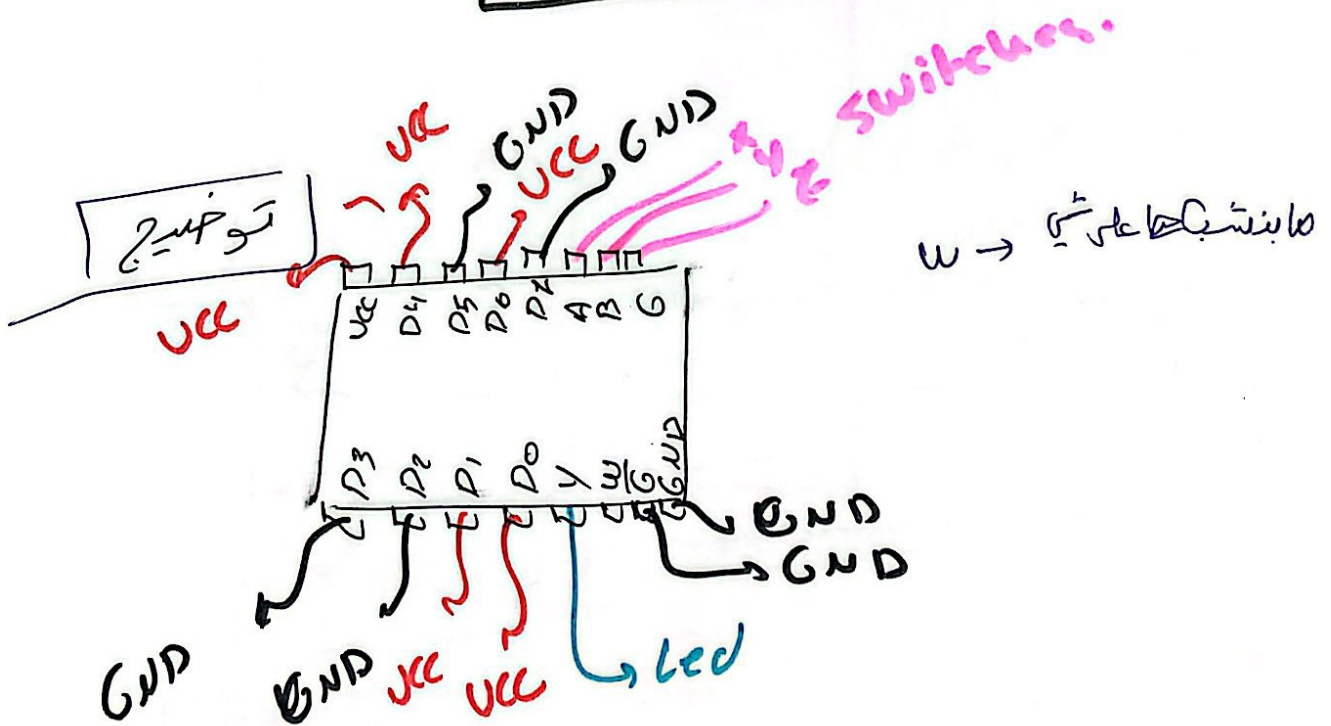 switches.
VCC GND VCC GND x y z
توضیح
VCC
VCC D4 D5 D6 D7 A B C
W →
D3 D2 D1 D0 Y W G GND
GND
GND
GND GND VCC VCC Led